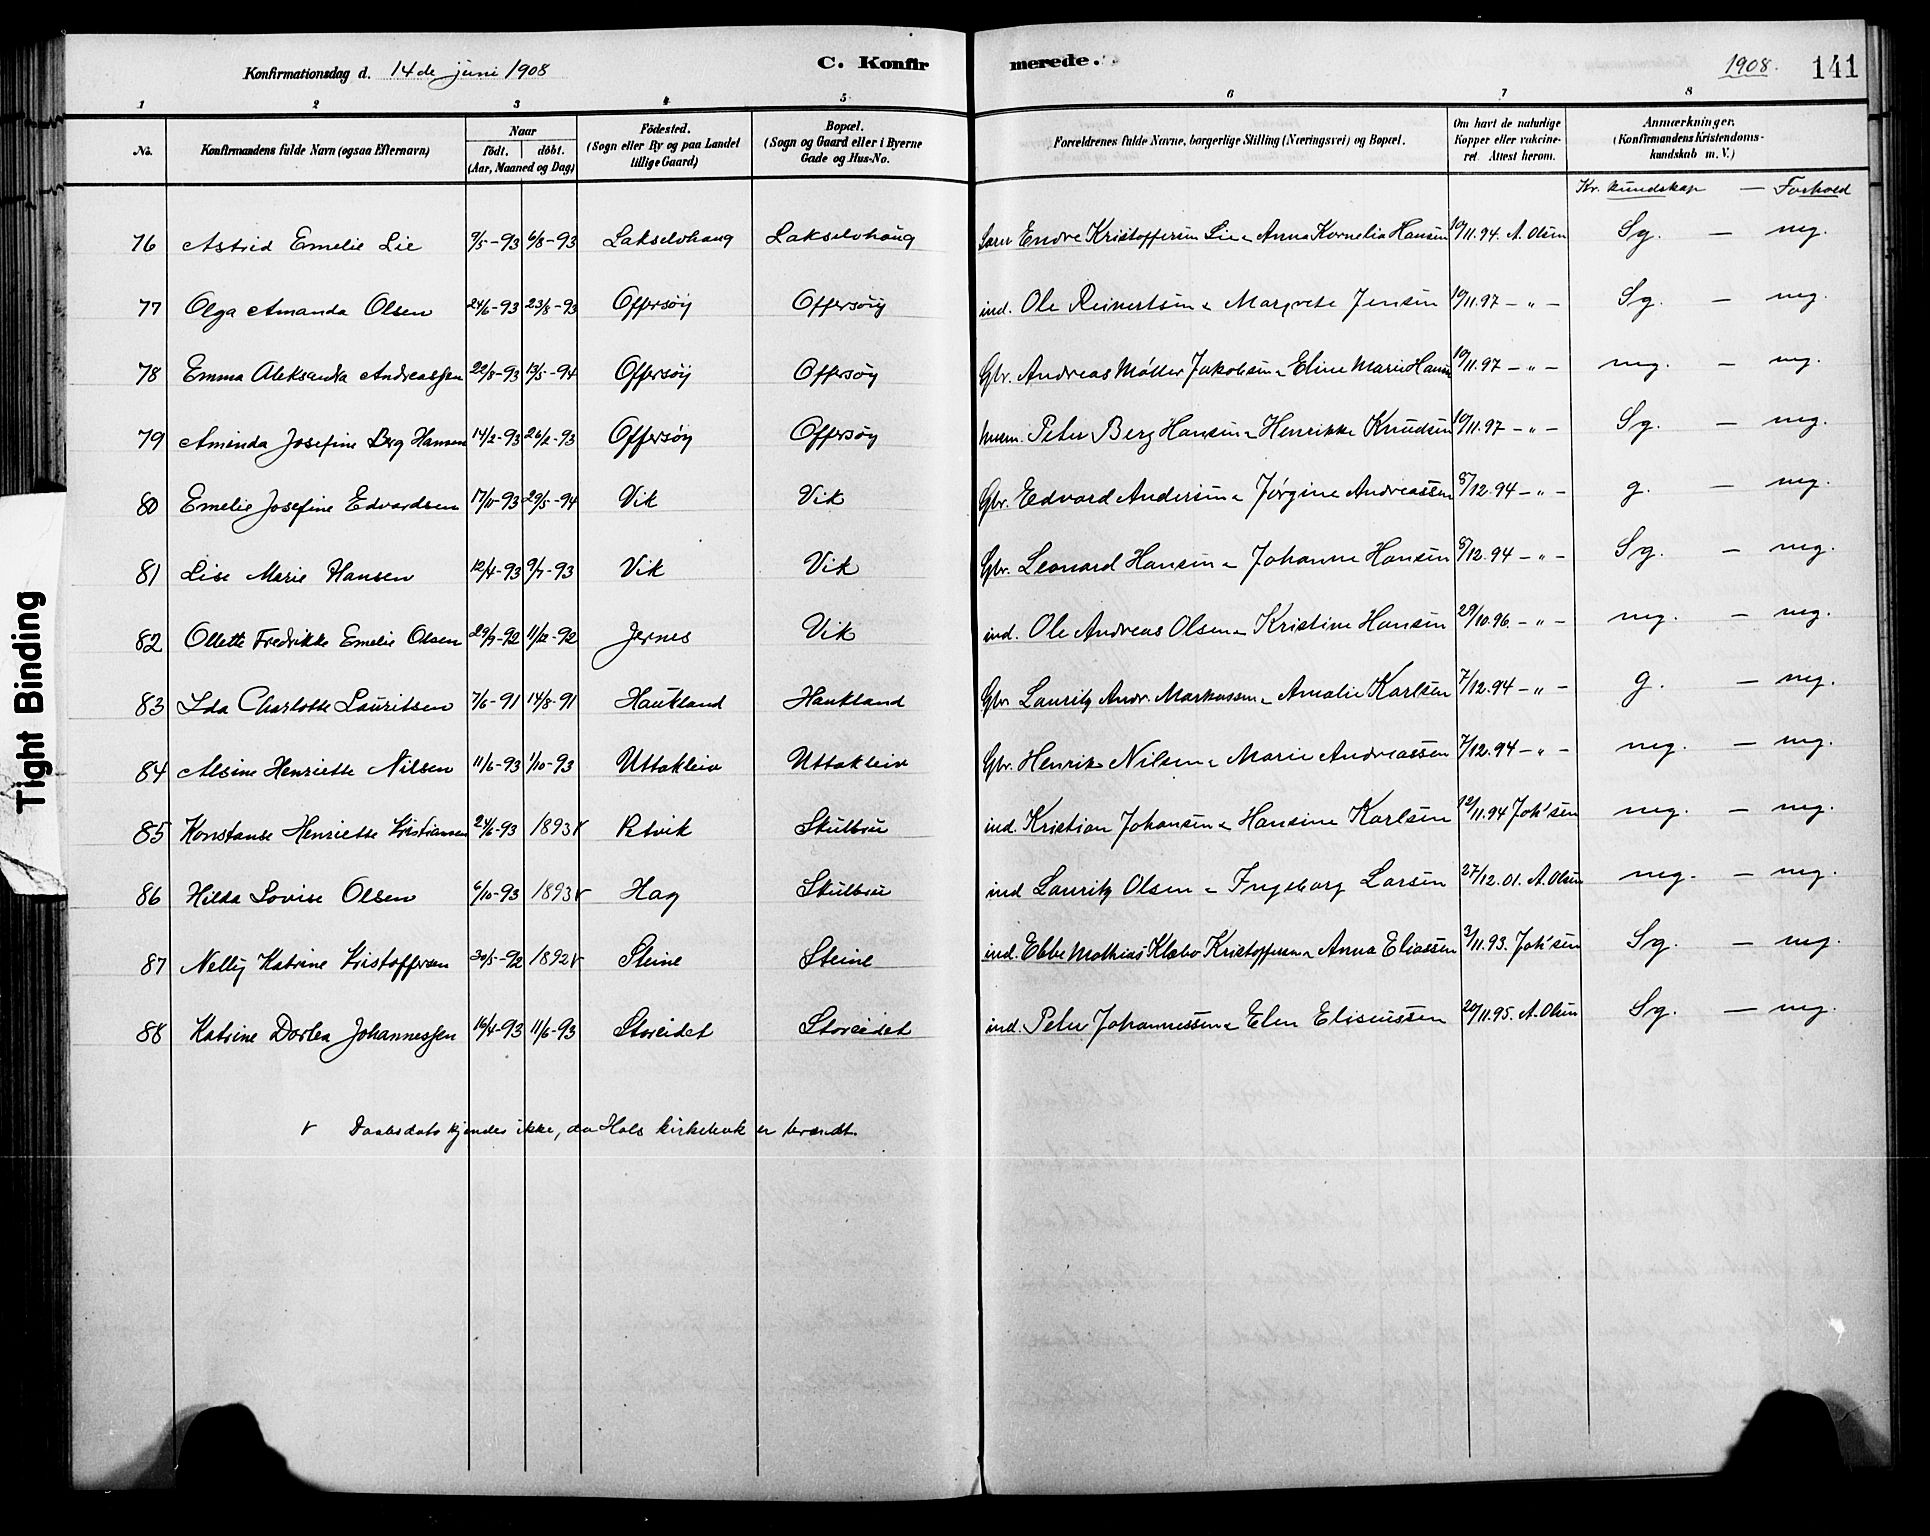 Konfirmationsdag d. 14de juni 1908 C. Konfirmerede. 1908. 141
1 2 3 4 5 6 7 8
No. Konfirmandens fulde Navn (ogsaa Efternavn) Naar födt. döbt. (Aar, Maaned og Dag) Födested. (Sogn eller By og paa Landet tillige Gaard) Bopæl. (Sogn og Gaard eller i Byerne Gade og Hus-No. Forældrenes fulde Navne, borgerlige Stilling (Næringsvei) og Bopæl. Om havt de naturlige Kopper eller vakcineret. Attest herom. Anmærkninger. (Konfirmandens Kristendomskundskab m. V.)
Kr. kundskap — Forhold
76 Astrid Emelie Lie 9/5-93 6/8-93 Lakselvhaug Lakselvhaug Endre Kristoffersen Lie Anna Kornelia Hansen 10/11.94. A. Olsen Sg. — mg.
77 Olga Amanda Olsen 24/6-93 23/8-93 Offersöy Offersöy ind. Ole Reinertsen & Margrete Jensen 10/11.97 — " — Sg. — mg.
78 Emma Aleksanda Andreassen 22/8-93 13/5-94 Offersöy Offersöy Gbr. Andreas Møller Jakobsen & Eline Marie Hansen 10/11.97 — " — mg. — mg.
79 Aminda Josefine Berg Hansen 14/2-93 26/2-93 Offersöy Offersöy husm. Peter Berg Hansen & Henrikke Knudsen 10/11.97 — " — Sg. — mg.
80 Emelie Josefine Edvardsen 17/10-93 29/5-94 Vik Vik Gbr. Edvard Andersen & Jørgine Andreassen 8/12.94 — " — g. — mg.
81 Lise Marie Hansen 12/4-93 9/7-93 Vik Vik Gbr. Leonard Hansen & Johanne Hansen 8/12.94 — " — Sg. — mg.
82 Ollette Fredrikke Emelie Olsen 29/9-92 11/12-92 Jernes Vik ind. Ole Andreas Olsen & Kristine Hansen 29/10.96. — " — mg. — mg.
83 Ida Charlotte Lauritsen 7/6-91 14/8-91 Haukland Haukland Gbr. Lauritz Andr. Markussen & Amalie Karlsen 7/12.94 — " — g. — mg.
84 Alsine Henriette Nilsen 11/6-93 1/10-93 Uttakleiv Uttakleiv Gbr. Henrik Nilsen & Marie Andreassen 7/12.94 — " — mg. — mg.
85 Konstanse Henriette Kristiansen 24/6-93 1893 v Petvik Skulbru ind. Kristian Johansen & Hansine Karlsen 12/11.94 Joh'sen mg. — mg.
86 Hilda Lovise Olsen 6/10-93 1893 v Hag Skulbru ind Lauritz Olsen & Ingeborg Larsen 27/12.01. A. Olsen mg. — mg.
87 Nelly Katrine Kristoffersen 30/5-92 1892 v Steine Steine ind. Ebbe Mathias Klæbo Kristoffersen & Anna Eliassen 3/11.93. Joh'sen Sg. — mg.
88 Katrine Dortea Johannessen 16/4-93 11/6-93 Storeidet Storeidet ind. Peter Johannessen & Elen Eliseussen 20/11.95. A. Olsen Sg. — mg.
v Daabsdato kjendes ikke, da Hols kirkebok er brændt.
Tight Binding